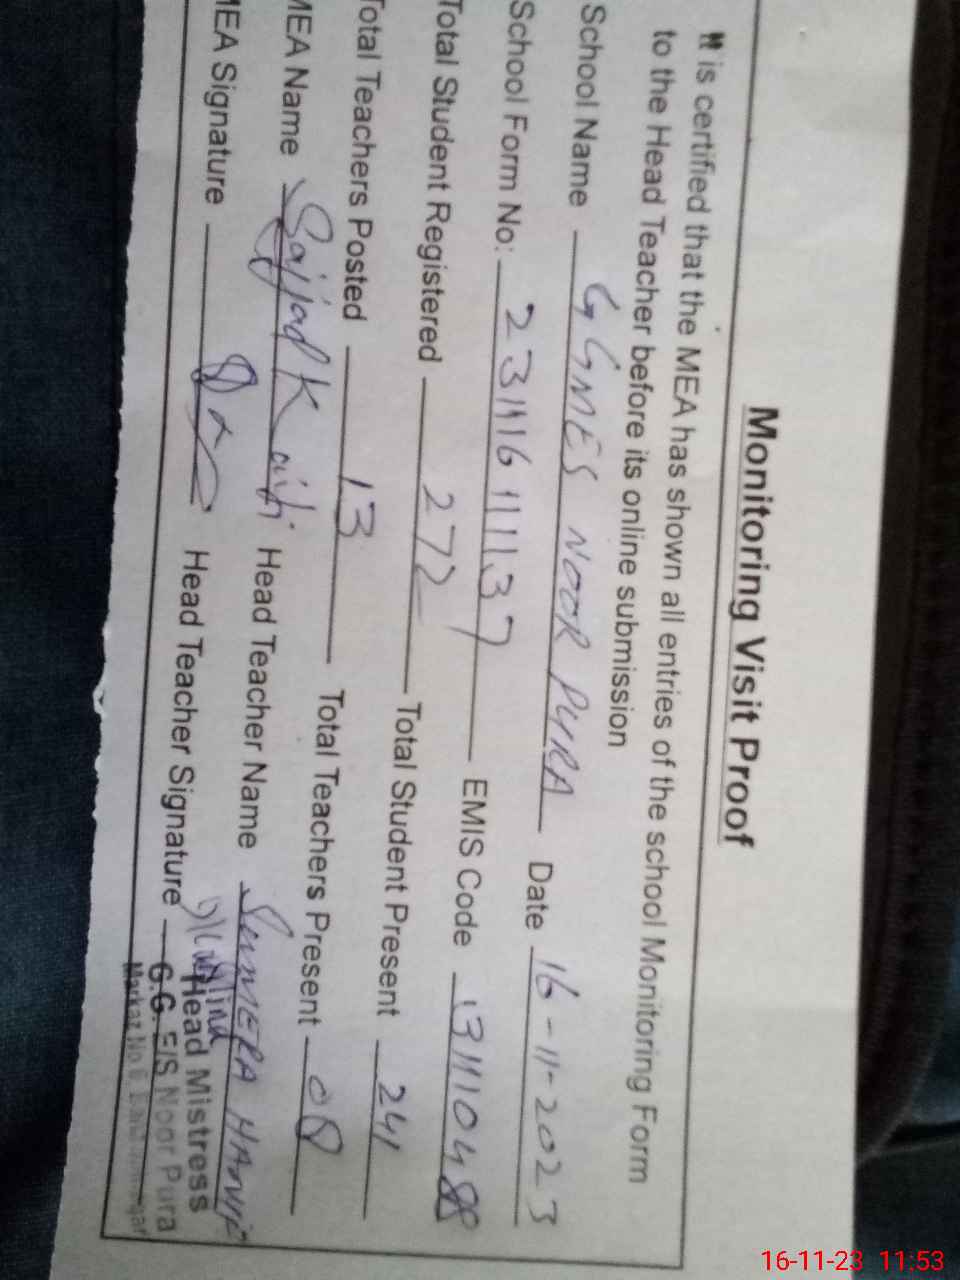 Monitoring Visit Proof
It is certified that the MEA has shown all entries of the school Monitoring Form
to the Head Teacher before its online submission
School Name GGMES NOOR PURA Date 16-11-2023
School Form No: EMIS Code
Total Student Registered 272 Total Student Present 241
Total Teachers Posted 13 Total Teachers Present 08
MEA Name Sajjad Head Teacher Name SUMERA HANIF
MEA Signature Head Teacher Signature
Head Mistress
Noor Pura
Markaz No 6
16-11-23 11:53